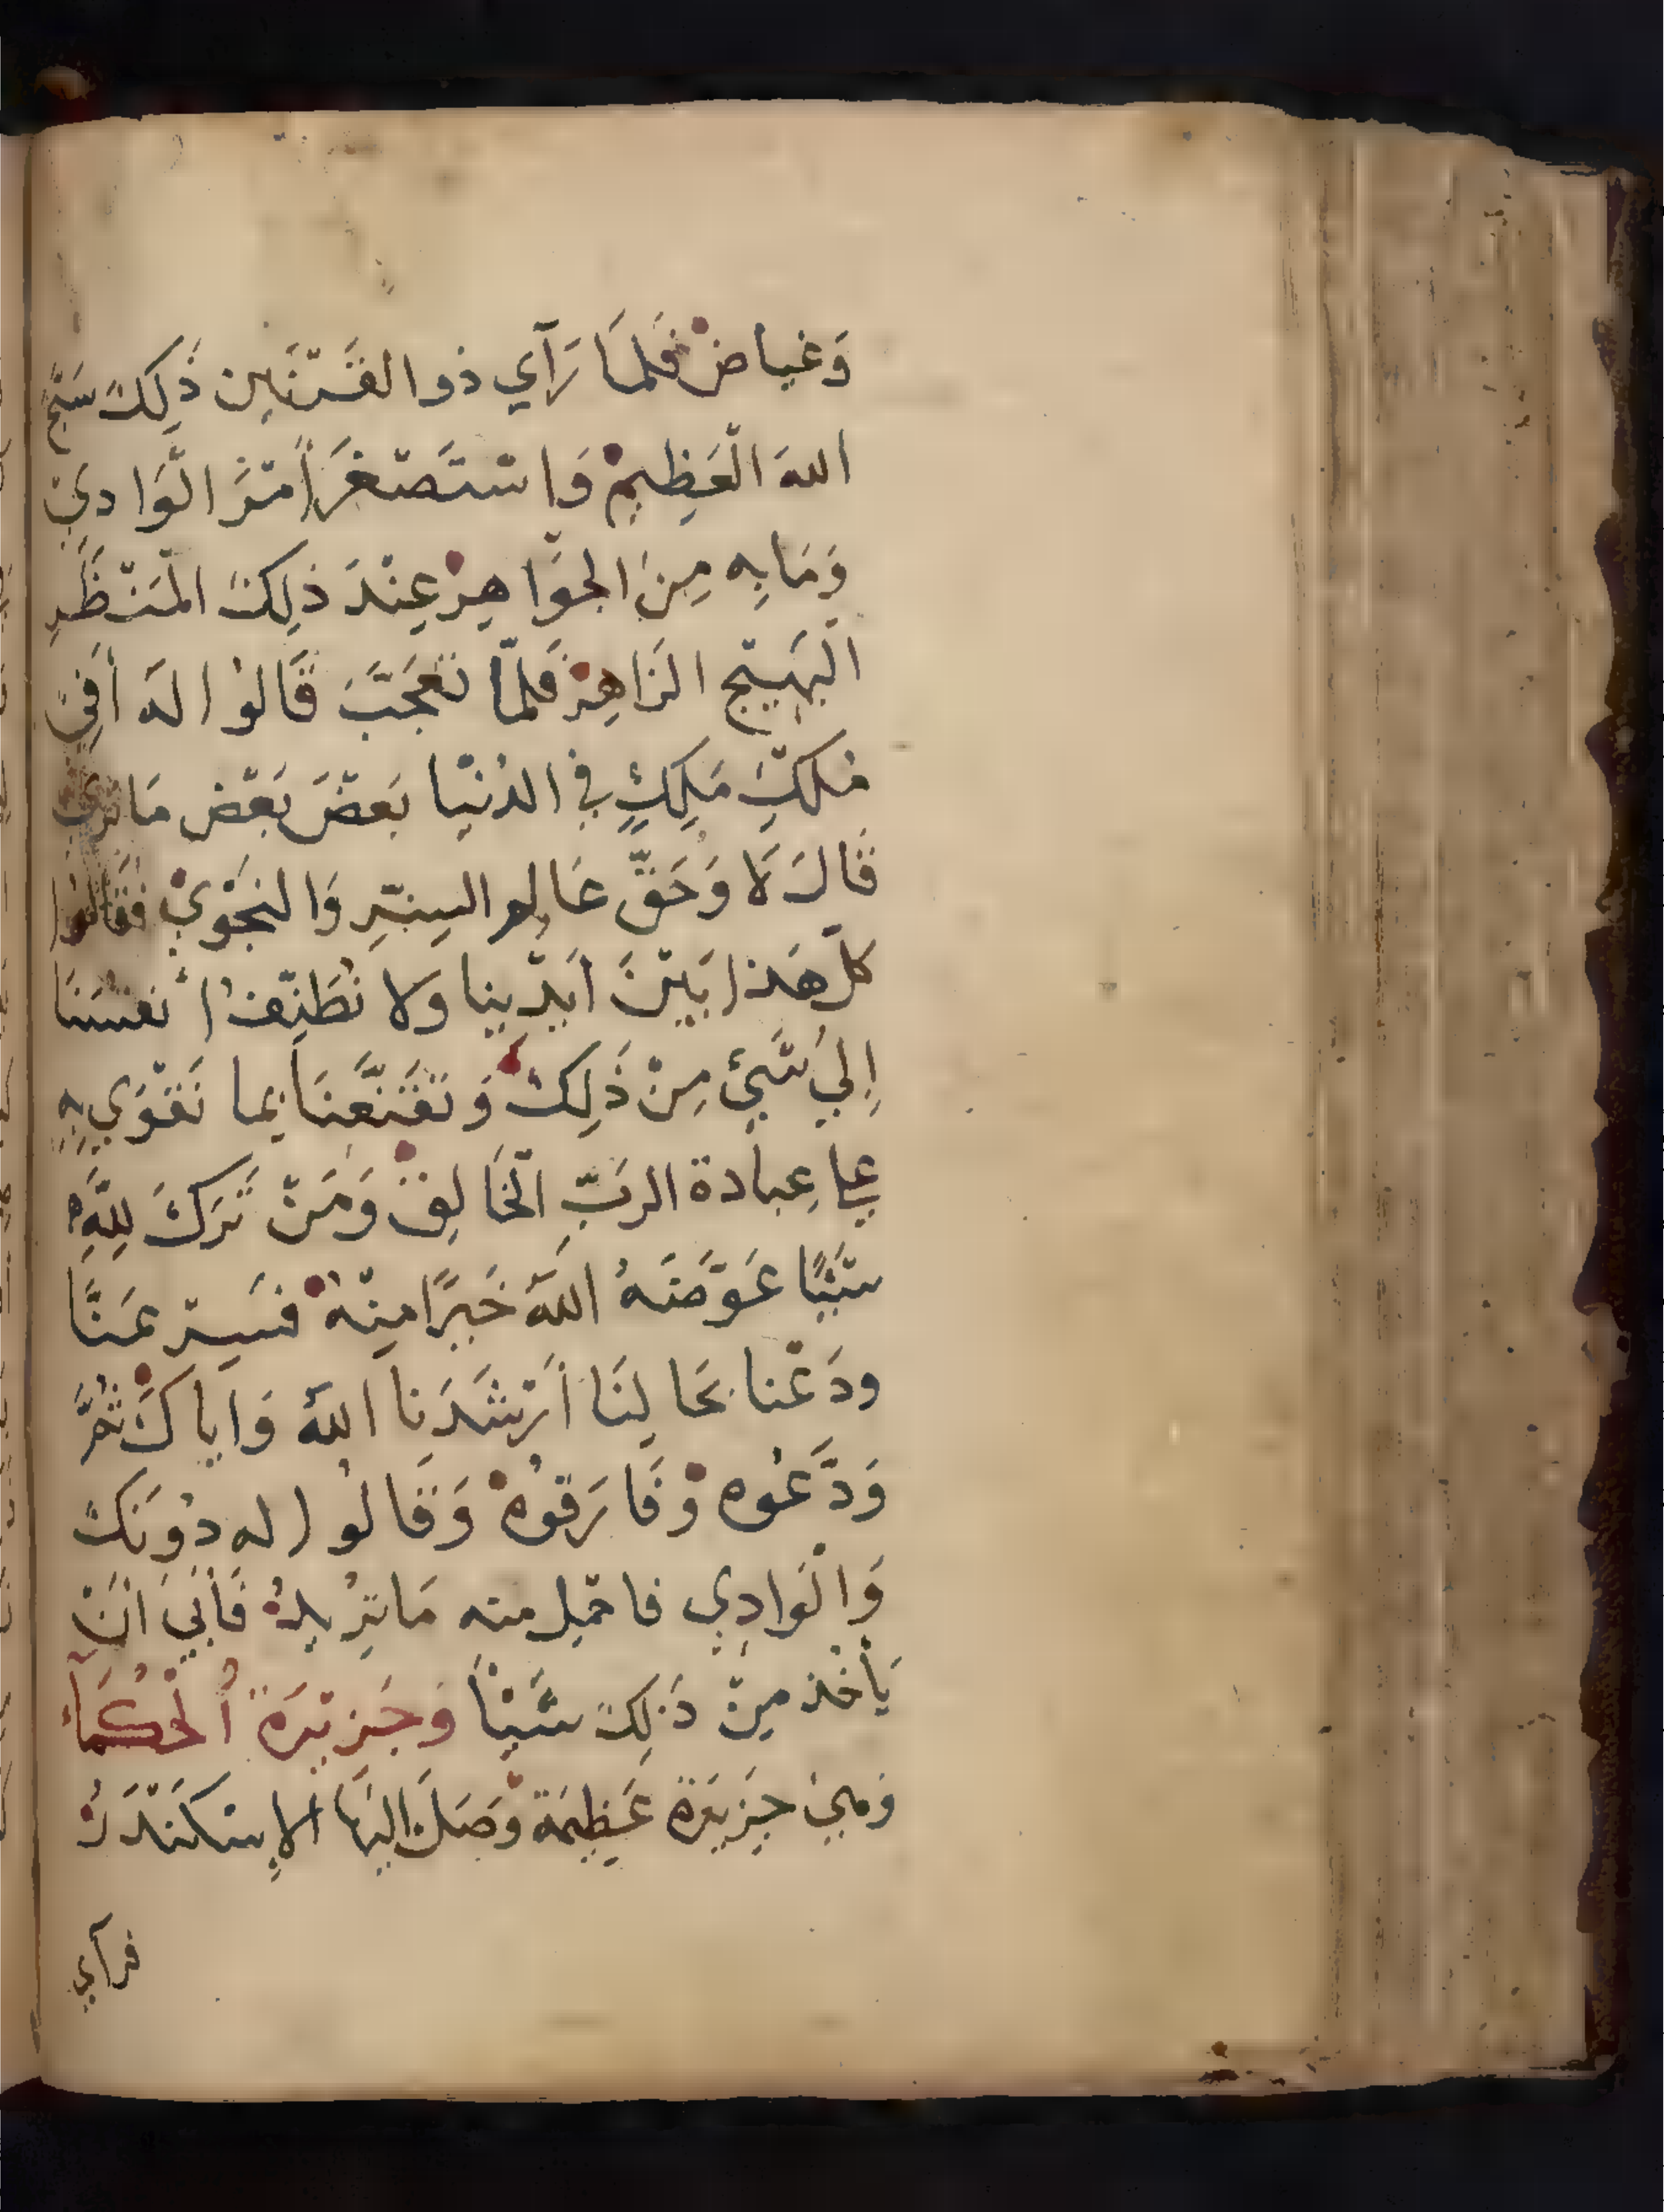 وَغياضْ فَلمَا رَآي ذو القَرْنَين ذَلِكَ سَبَّحَ
اللهَ الْعَظِيمْ وَاسْتَصْغَرَ أمْرَ الْوَادِيْ
وَمَا بِهِ مِنَ الجَوَاهِرْ عِنْدَ ذلِكَ المَنْظَرِ
الْبَهِيْجِ الزَاهِرْ فَلمّا تعَجَّبَ قَالوُا لَه أفِيْ
مُلكِ مَلِكٍ في الدُنْيا بَعضَ بَعْض مَا تَري
قَالَ لَا وَحَقِّ عَالِمِ السِرِّ وَالنجْوَيْ فقَالوُا
كلّ هَذا بَيْنَ أيْدِينا وَلا نُطَرِّفُ أنفسَنَا
إِليَ شَيْءٍ مِنْ ذَلِكْ وَتَقَنَّعْنَا بِما نَقْوَي بِهِ
عليِ عِبادة الربِّ الْخَالِقْ وَمَنْ تَرَكَ لِلَّهِ
شَيْئًا عَوَّضَهُ اللَّهُ خَيرًا مِنْهْ فسِرْ عَنَّا
ودَعْنا بحَالِنَا أرْشَدَنا اللهُ وَاياكَ ثُمَّ
وَدَّعُوه وْفَارَقوُهْ وَقَالوُا له دُونَكَ
وَالْوَادِي فاحْمِل منه مَا تريدُ فَأبَيَ أنْ
يَأخُذ مِنْ ذَلِكَ شَيْأ وَجَزيْرَةُ الْحُكَمَاء
وَهيَ جَزِيْرَة عَظِيمَةْ وَصَلَ إليْهَا الإسْكَنْدَرُ
فرآي